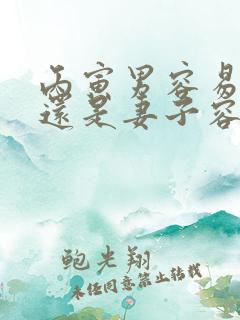 丙寅男容易
還是妻子容
鲍光翔
未经同意禁止转载